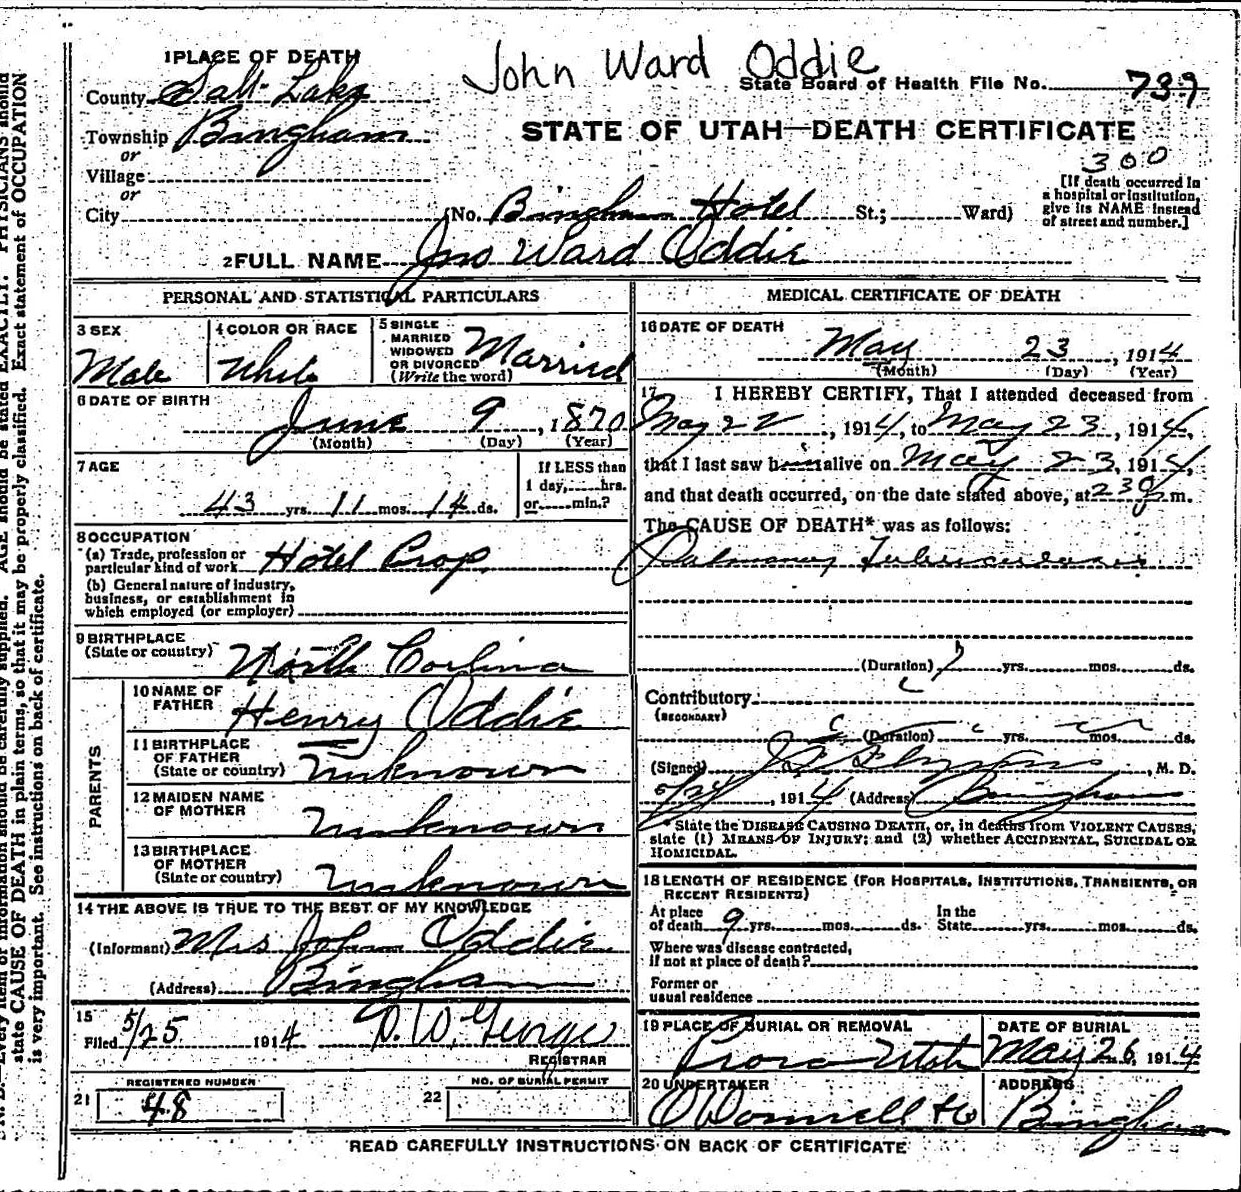 John Ward Oddie
1 PLACE OF DEATH
County Salt Lake
State Board of Health File No. 739
Township Bingham
STATE OF UTAH—DEATH CERTIFICATE
or
Village
300
or
[If death occurred in
a hospital or institution,
give its NAME instead
of street and number.]
City (No. Bingham Hotel St.; Ward)
2 FULL NAME Jno Ward Oddie
PERSONAL AND STATISTICAL PARTICULARS
3 SEX
Male
4 COLOR OR RACE
White
5 SINGLE
MARRIED
WIDOWED
OR DIVORCED
(Write the word)
Married
6 DATE OF BIRTH
June 9, 1870
(Month) (Day) (Year)
7 AGE
43 yrs. 11 mos. 14 ds.
If LESS than
1 day, hrs.
or min.?
8 OCCUPATION
(a) Trade, profession or
particular kind of work Hotel Prop.
(b) General nature of industry,
business, or establishment in
which employed (or employer)
9 BIRTHPLACE
(State or country) North Carlina
PARENTS
10 NAME OF
FATHER Henry Oddie
11 BIRTHPLACE
OF FATHER
(State or country) unknown
12 MAIDEN NAME
OF MOTHER unknown
13 BIRTHPLACE
OF MOTHER
(State or country) unknown
14 THE ABOVE IS TRUE TO THE BEST OF MY KNOWLEDGE
(Informant) Mrs John Oddie
(Address) Bingham
15
Filed 5/25 1914 D. W. George
REGISTRAR
REGISTERED NUMBER
21 48
NO. OF BURIAL PERMIT
22
MEDICAL CERTIFICATE OF DEATH
16 DATE OF DEATH
May 23, 1914
(Month) (Day) (Year)
17 I HEREBY CERTIFY, That I attended deceased from
May 22, 1914, to May 23, 1914,
that I last saw him alive on May 23, 1914,
and that death occurred, on the date stated above, at 230 m.
The CAUSE OF DEATH* was as follows:
Pulmonary Tuberculosis
(Duration) yrs. mos. ds.
Contributory
(SECONDARY)
(Duration) yrs. mos. ds.
(Signed) , M. D.
5/24, 1914 (Address) Bingham
* State the DISEASE CAUSING DEATH, or, in deaths from VIOLENT CAUSES,
state (1) MEANS OF INJURY; and (2) whether ACCIDENTAL, SUICIDAL OR
HOMICIDAL.
18 LENGTH OF RESIDENCE (FOR HOSPITALS, INSTITUTIONS, TRANSIENTS, OR
RECENT RESIDENTS)
At place
of death 9 yrs. mos. ds.
In the
State yrs. mos. ds.
Where was disease contracted,
if not at place of death?
Former or
usual residence
19 PLACE OF BURIAL OR REMOVAL
Provo Utah
DATE OF BURIAL
May 26, 1914
20 UNDERTAKER
O'Donnell & Co
ADDRESS
Bingham
READ CAREFULLY INSTRUCTIONS ON BACK OF CERTIFICATE
N. B.—Every item of information should be carefully supplied. AGE should be stated EXACTLY. PHYSICIANS should
state CAUSE OF DEATH in plain terms, so that it may be properly classified. Exact statement of OCCUPATION
is very important. See instructions on back of certificate.